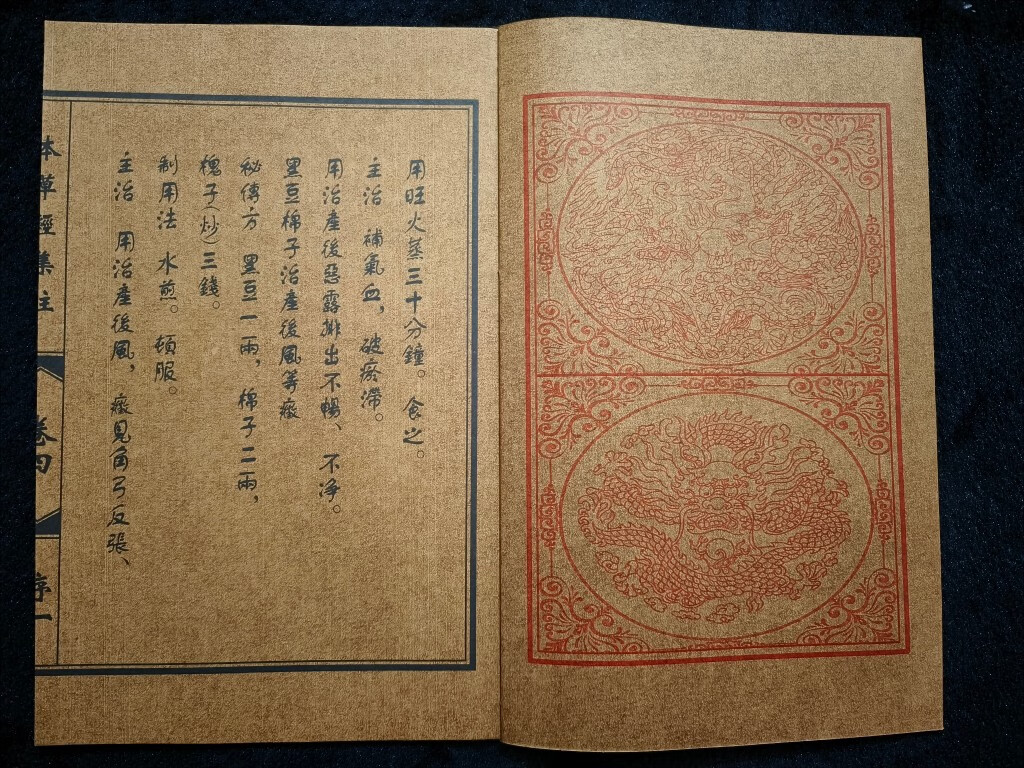 用旺火蒸三十分鐘。食之。
主治 補氣血，破瘀滯。
用治產後惡露排出不暢、不净。
黑豆棉子治產後風等癥
秘傳方 黑豆一兩，棉子二兩，
槐子（炒）三錢。
制用法 水煎。頓服。
主治 用治產後風，癥見角弓反張、
本草經集注 卷四 序一